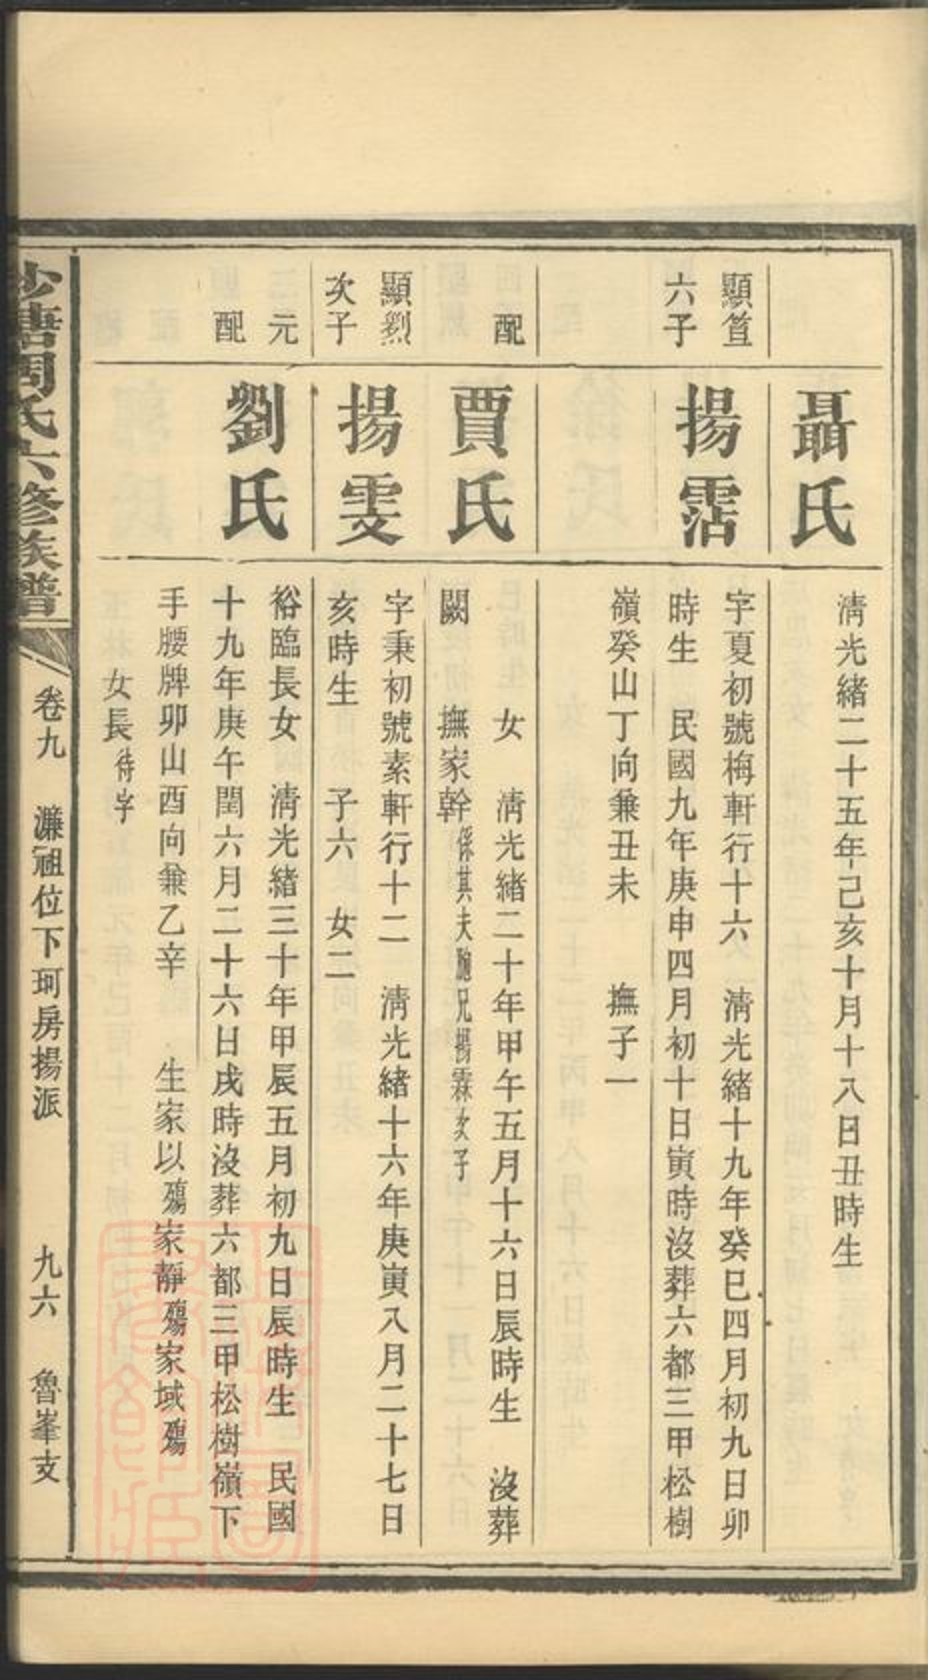 聶氏
清光緒二十五年己亥十月十八日丑時生
顯笪
六子
揚霑
字夏初號梅軒行十六 清光緒十九年癸巳四月初九日卯
時生 民國九年庚申四月初十日寅時沒葬六都三甲松樹
嶺癸山丁向兼丑未 撫子一
配
賈氏
女 清光緒二十年甲午五月十六日辰時生 沒葬
闕 撫家幹係其夫胞兄揚霖次子
顯烈
次子
揚雯
字秉初號素軒行十二 清光緒十六年庚寅八月二十七日
亥時生 子六 女二
元
配
劉氏
裕臨長女 清光緒三十年甲辰五月初九日辰時生 民國
十九年庚午閏六月二十六日戌時沒葬六都三甲松樹嶺下
手腰牌卯山酉向兼乙辛 生家以殤家靜殤家域殤
女長待字
沙塘周氏六修族譜
卷九 濂祖位下珂房揚派 九六 魯峯支